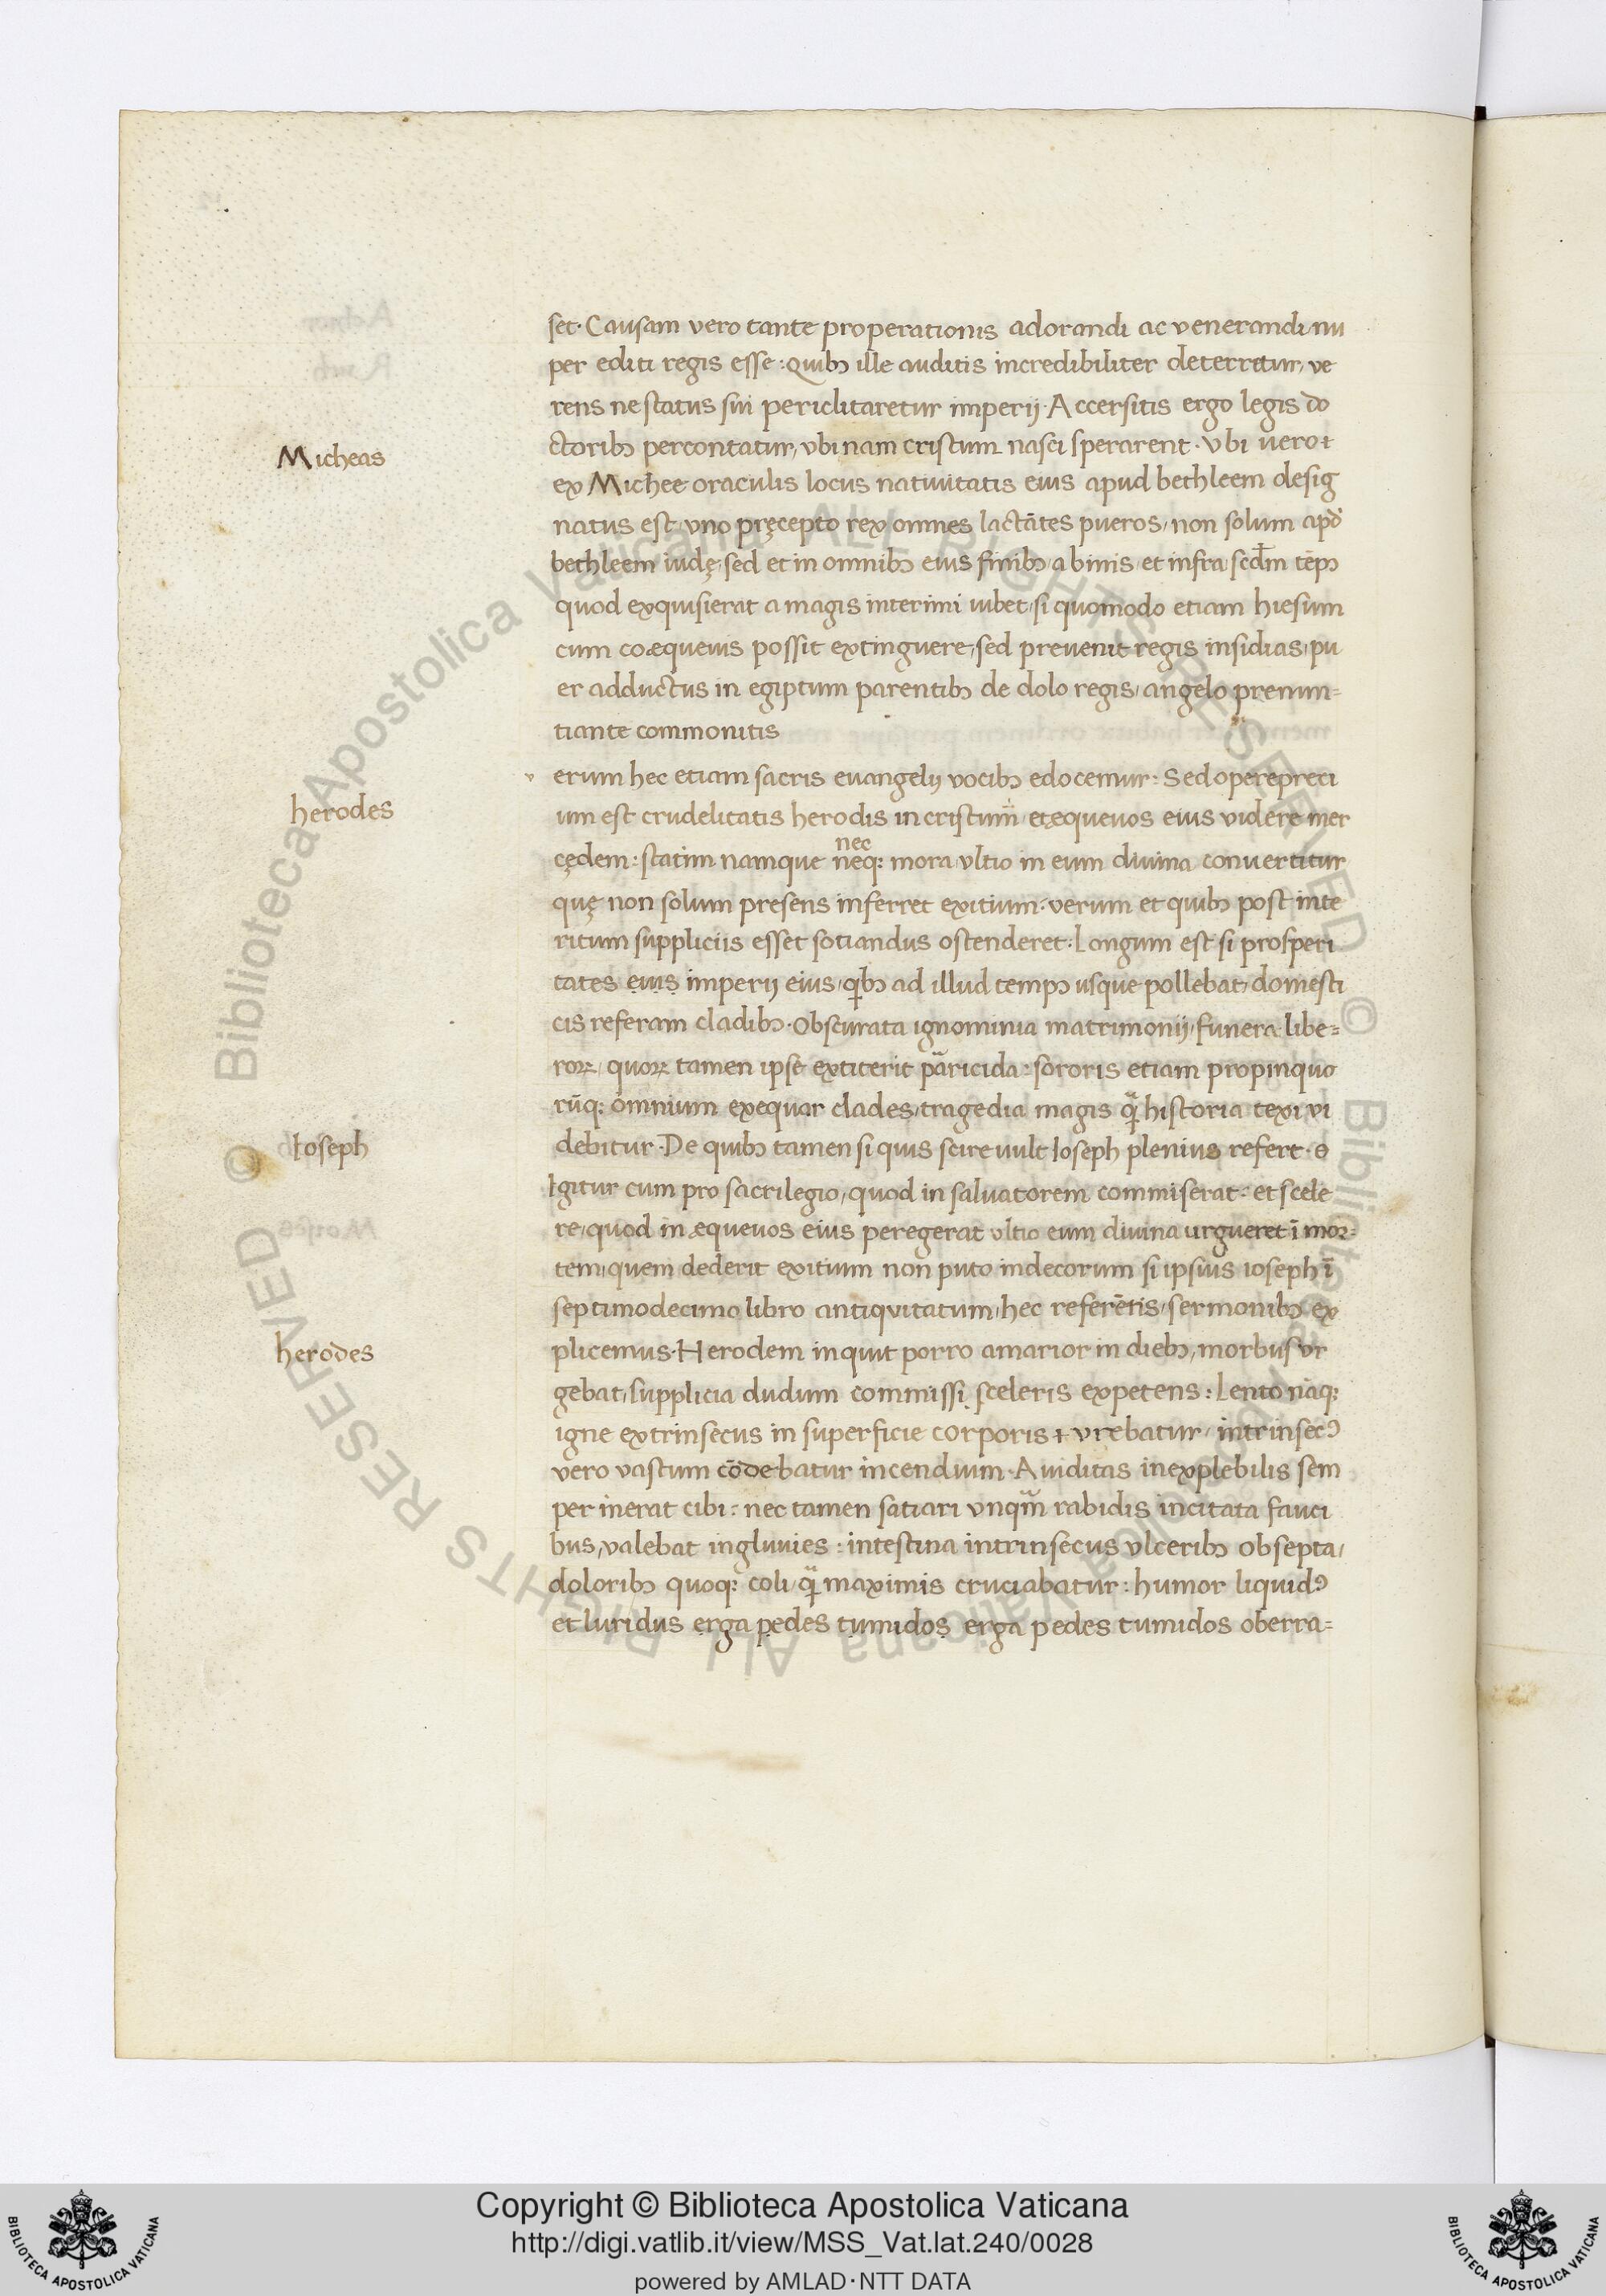 set. Causam vero tante properationis adorandi ac venerandi nu
per editi regis esse: quibꝫ ille auditis incredibiliter deterretur, ve
rens ne status sui periclitaretur imperij. Accersitis ergo legis do
ctoribꝫ percontatur, vbi nam cristum nasci sperarent. Vbi uero ⁊
Micheas
ex Michee oraculis locus natiuitatis eius apud bethleem desig
natus est, vno pręcepto rex omnes lactātes pueros, non solum apđ
bethleem iudę, sed et in omnibꝫ eius finibꝫ a bimis, et infra, scđm tēpꝫ
quod exquisierat a magis interimi iubet, si quomodo etiam hiesum
cum coæqueuis possit extinguere, sed preuenit regis insidias, pu
er adductus in egiptum parentibꝫ de dolo regis, angelo prenun=
tiante commonitis
v erum hec etiam sacris euangelij vocibꝫ edocemur: Sed opereprecı
herodes
um est crudelitatis herodis in cristum et ęqueuos eius videre mer
nec
cędem: statim namque neqꝫ mora, vltio in eum diuina conuertitur
quę non solum presens inferret exitium. verum et quibꝫ post inte
ritum suppliciis esset sotiandus ostenderet. Longum est si prosperi
tates eius imperij eius, qibꝫ ad illud tempꝫ usque pollebat, domesti
cis referam cladibꝫ. Obscurata ignominia matrimonij, funera libe=
roꝝ, quoꝝ tamen ipse extiterit paricida: sororis etiam propinquo
rūqꝫ omnium exequar clades, tragedia magis q̃ historia texi vi
Ioseph
debitur. De quibꝫ tamen si quis scire uult Ioseph plenius refert. o
Igitur cum pro sacrilegio, quod in saluatorem commiserat: et scele
re, quod in æqueuos eius peregerat vltio eum diuina urgueret ī mor=
tem, quem dederit exitium non puto indecorum si ipsius ioseph ī
septimodecimo libro antiqvitatum, hec referētis, sermonibꝫ ex
herodes
plicemus. Herodem inquit porro amarior in diebꝫ, morbus vr
gebat, supplicia dudum commissi sceleris expetens: Lento nāqꝫ
igne extrinsecus in superficie corporis ⁊ vrebatur, intrinsecꝰ
vero vastum cōdebatur incendium. Auiditas inexplebilis sem
per inerat cibi: nec tamen satiari vnqm̄ rabidis incitata fauci
bus, valebat ingluuies: intestina intrinsecus vlceribꝫ obsepta,
doloribꝫ quoqꝫ coli q̃ maximis cruciabatur: humor liquidꝰ
et luridus erga pedes tumidos erga pedes tumidos oberra=
Copyright © Biblioteca Apostolica Vaticana
http://digi.vatlib.it/view/MSS_Vat.lat.240/0028
powered by AMLAD·NTT DATA
BIBLIOTECA APOSTOLICA VATICANA
BIBLIOTECA APOSTOLICA VATICANA
© Biblioteca Apostolica Vaticana ALL RIGHTS RESERVED
© Biblioteca Apostolica Vaticana ALL RIGHTS RESERVED